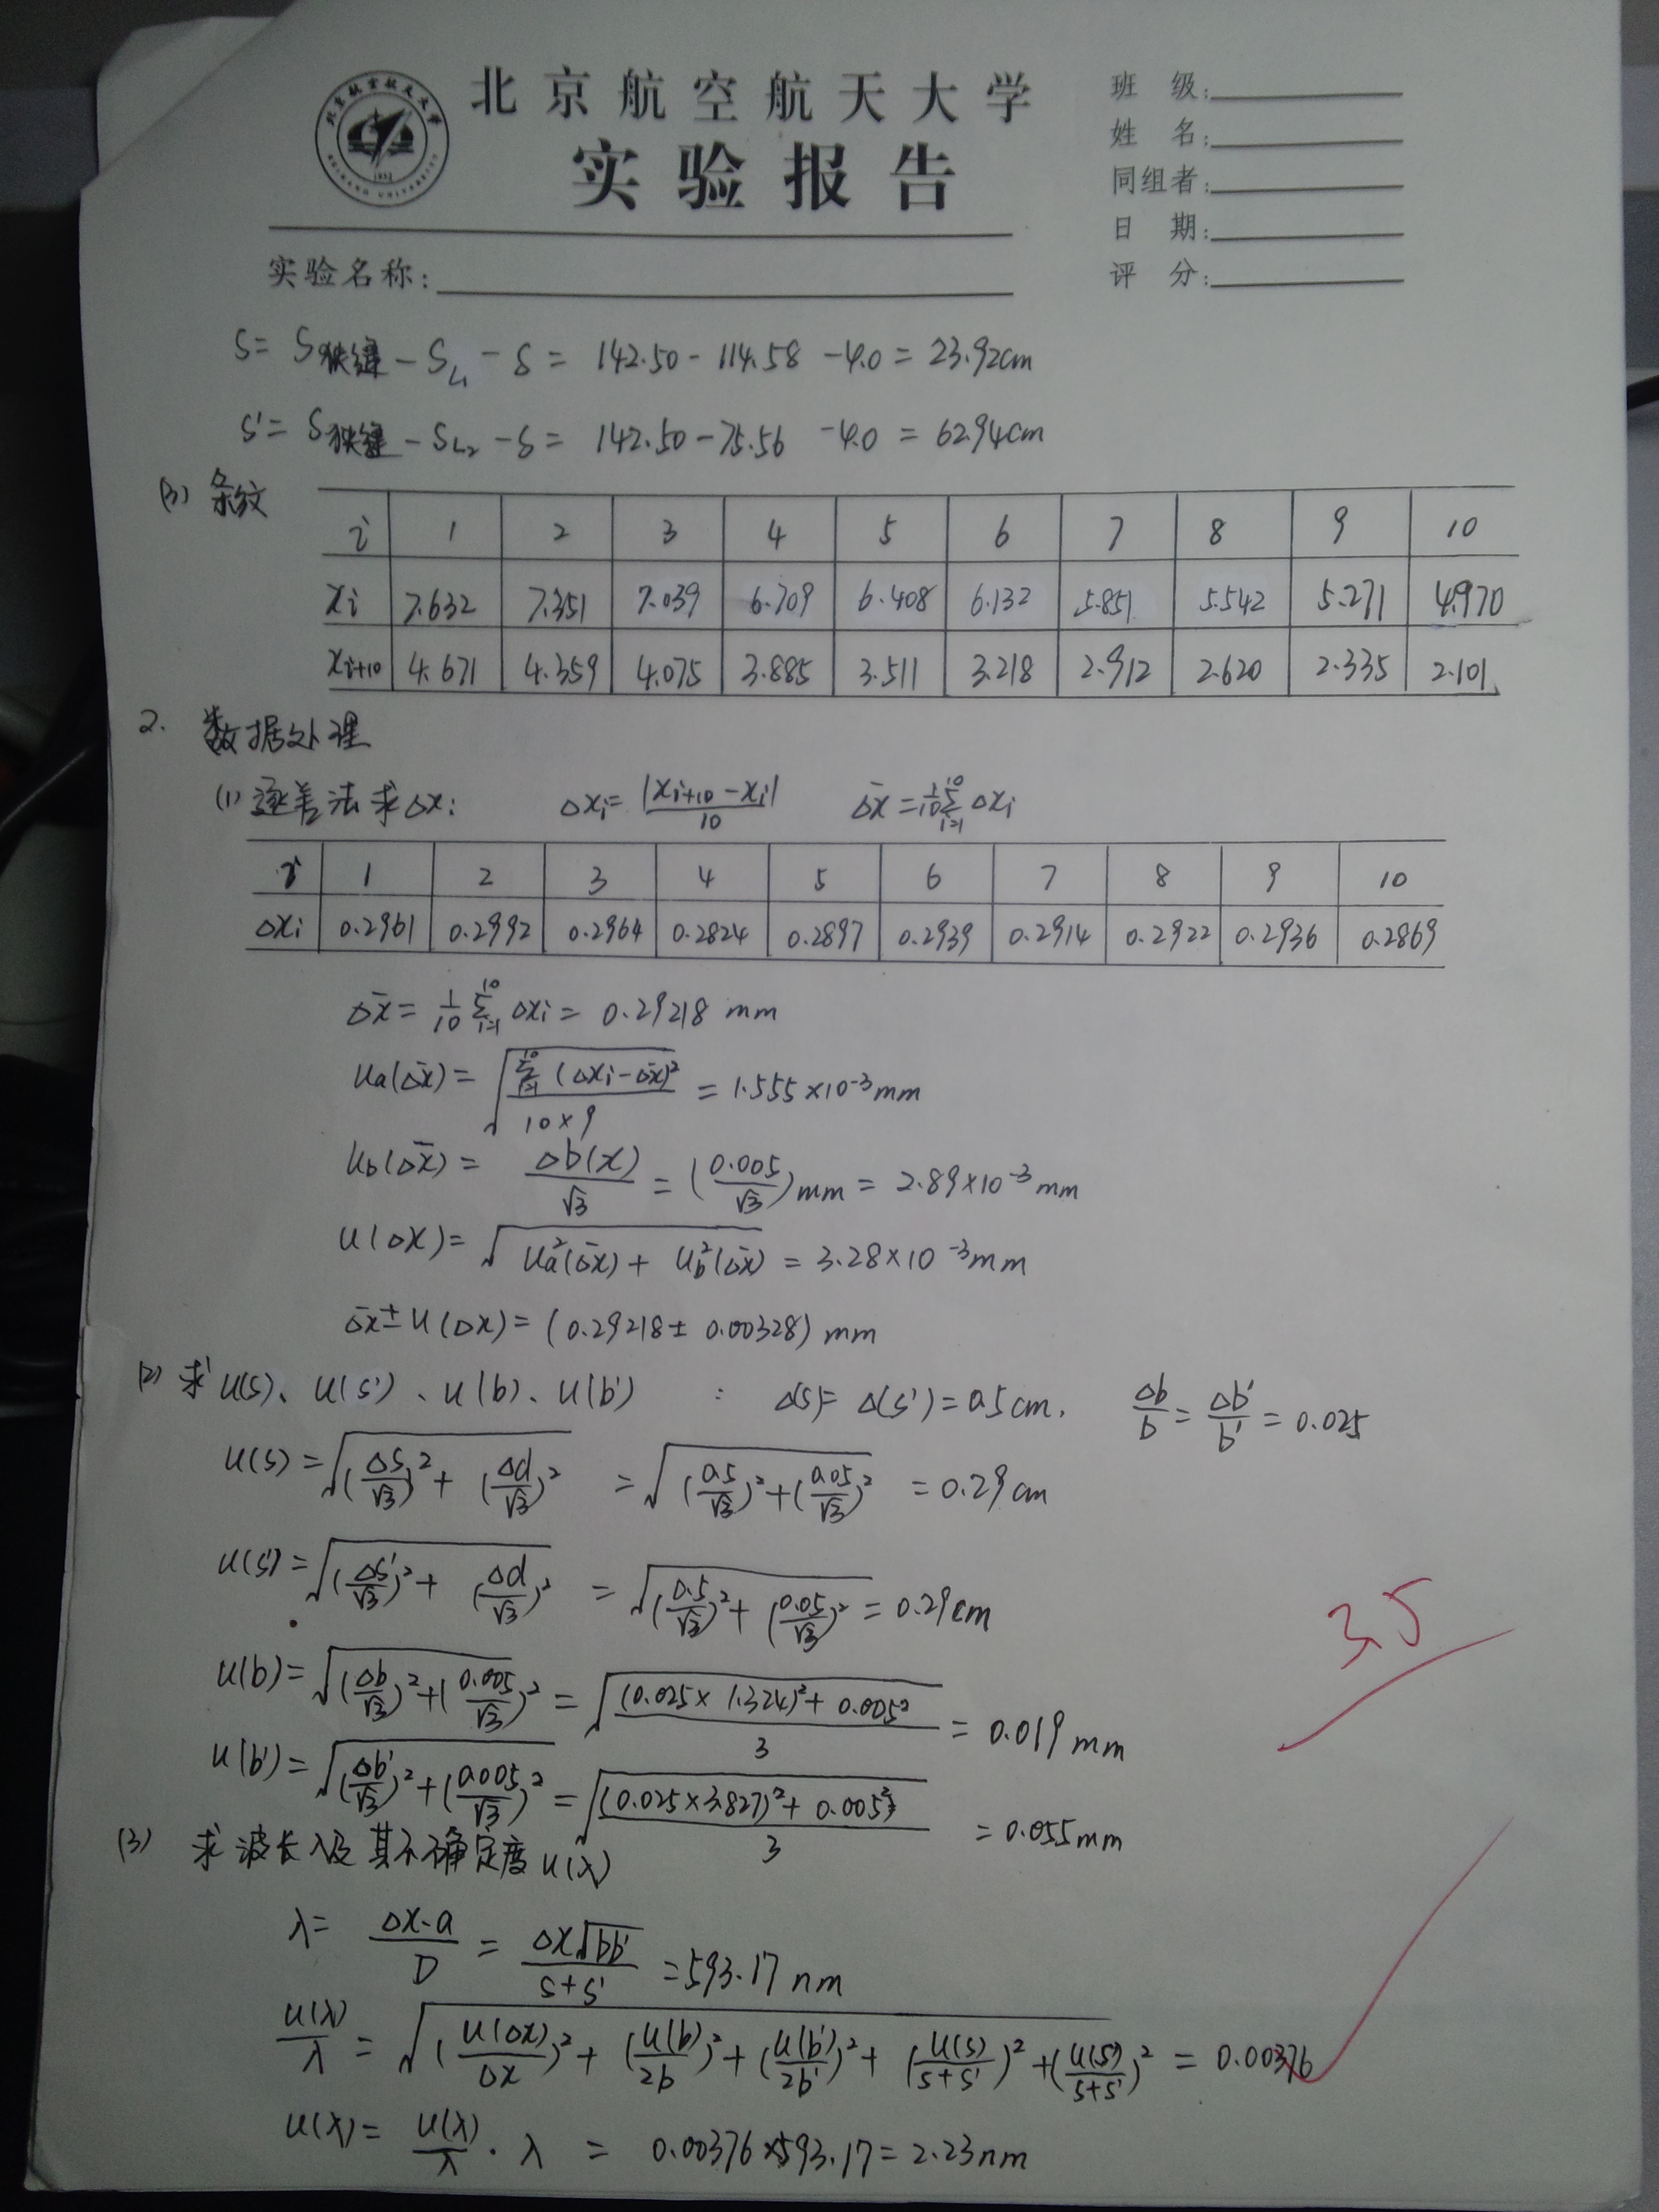 北京航空航天大学
实验报告
班 级:
姓 名:
同组者:
日 期:
评 分:
实验名称:
S= S狭缝 - S_L1 - δ = 142.50 - 114.58 - 4.0 = 23.92cm
S'= S狭缝 - S_L2 - δ = 142.50 - 75.56 - 4.0 = 62.94cm
(3) 条纹
i 1 2 3 4 5 6 7 8 9 10
xi 7.632 7.351 7.039 6.709 6.408 6.132 5.851 5.542 5.271 4.970
xi+10 4.671 4.359 4.075 3.885 3.511 3.218 2.912 2.620 2.335 2.101
2. 数据处理
(1) 逐差法求Δx: Δxi = |xi+10 - xi|/10 Δx̄ = 1/10 Σ(i=1→10) Δxi
i 1 2 3 4 5 6 7 8 9 10
Δxi 0.2961 0.2992 0.2964 0.2824 0.2897 0.2939 0.2914 0.2922 0.2936 0.2869
Δx̄ = 1/10 Σ(i=1→10) Δxi = 0.29218 mm
Ua(Δx̄) = √(Σ(i=1→10) (Δxi - Δx̄)²/10×9) = 1.555×10⁻³mm
Ub(Δx̄) = Δb(x)/√3 = (0.005/√3)mm = 2.89×10⁻³mm
U(Δx) = √(Ua²(Δx̄) + Ub²(Δx̄)) = 3.28×10⁻³mm
Δx̄ ± U(Δx) = (0.29218 ± 0.00328) mm
(2) 求U(S)、U(S')、U(b)、U(b') : Δ(S)= Δ(S') = 0.5cm, Δb/b = Δb'/b' = 0.025
U(S) = √((ΔS/√3)² + (Δd/√3)²) = √((0.5/√3)² + (0.05/√3)²) = 0.29cm
U(S') = √((ΔS'/√3)² + (Δd/√3)²) = √((0.5/√3)² + (0.05/√3)²) = 0.29cm
U(b) = √((Δb/√3)² + (0.005/√3)²) = √((0.025×1.324)² + 0.005²/3) = 0.019 mm
U(b') = √((Δb'/√3)² + (0.005/√3)²) = √((0.025×3.827)² + 0.005²/3) = 0.055mm
(3) 求波长λ及其不确定度U(λ)
λ = Δx·a/D = Δx√bb'/S+S' = 593.17 nm
U(λ)/λ = √((U(Δx)/Δx)² + (U(b)/2b)² + (U(b')/2b')² + (U(S)/S+S')² + (U(S')/S+S')²) = 0.00376
U(λ) = U(λ)/λ · λ = 0.00376×593.17 = 2.23nm
35